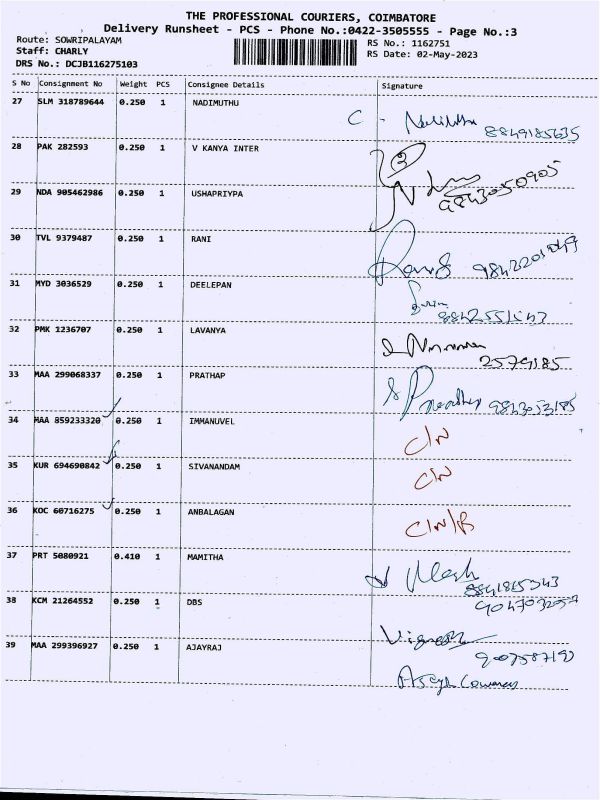 THE PROFESSIONAL COURIERS, COIMBATORE
Delivery Runsheet - PCS - Phone No.:0422-3505555 - Page No.:3
Route: SOWRIPALAYAM
RS No.: 1162751
Staff: CHARLY
RS Date: 02-May-2023
DRS No.: DCJB116275103
S No Consignment No Weight PCS Consignee Details Signature
27 SLM 318789644 0.250 1 NADIMUTHU
C - 8849185635
28 PAK 282593 0.250 1 V KANYA INTER
29 NDA 905462986 0.250 1 USHAPRIYPA 9843050905
30 TVL 9379487 0.250 1 RANI
31 MYD 3036529 0.250 1 DEELEPAN
32 PMK 1236707 0.250 1 LAVANYA
2579185
33 MAA 299068337 0.250 1 PRATHAP
34 MAA 859233320 0.250 1 IMMANUVEL C/N
35 KUR 694690842 0.250 1 SIVANANDAM C/N
36 KOC 60716275 0.250 1 ANBALAGAN C/N/B
37 PRT 5080921 0.410 1 MAMITHA
38 KCM 21264552 0.250 1 DBS
Vignesh
39 MAA 299396927 0.250 1 AJAYRAJ